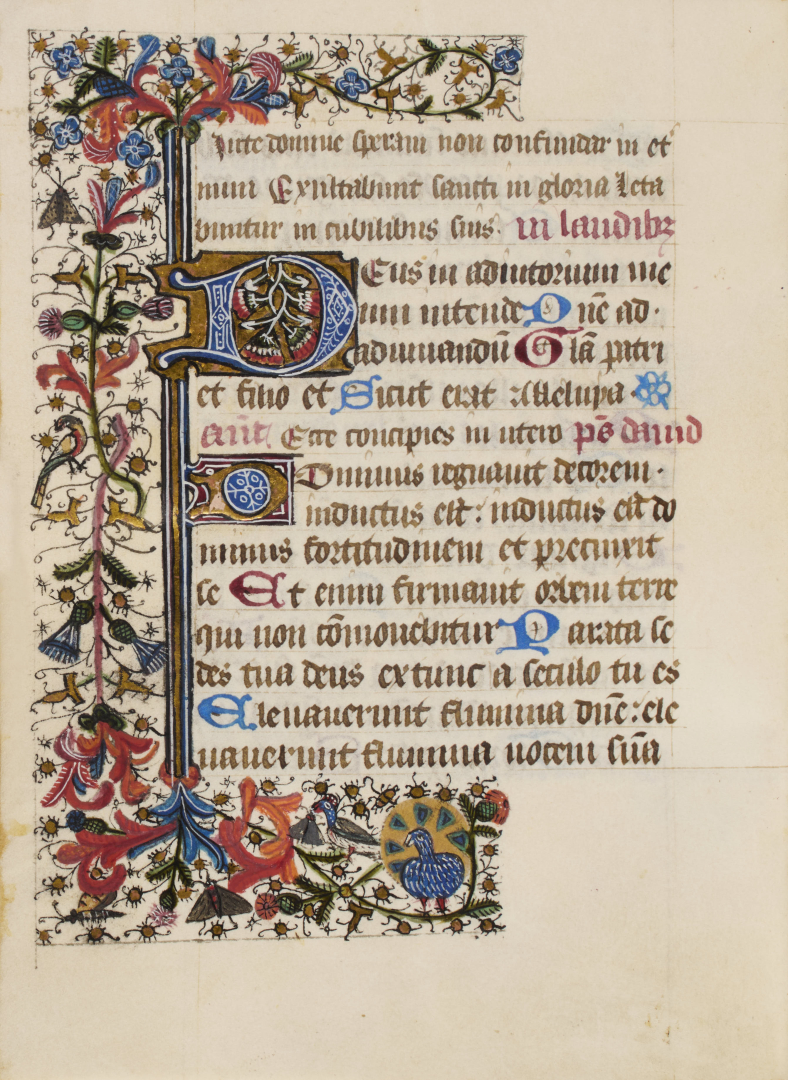 In te domine speravi non confundar in et
nu Exultabunt sancti in gloria Leta
buntur in cubilibus suis. In laudib9
DEus in adiutorium me
um intende Dñe ad·
adiuuandũ Glã patri
et filio et Sicut erat Alleluya·
añt. Ecce concipies in utero pš dauid
Dominus regnauit decorem·
inductus est: inductus est do
minus fortitudinem et precinxit
se Et enim firmauit orbem terre
qui non cõmouebitur Parata se
des tua deus extunc a seculo tu es
Eleuauerunt flumina dñe: ele
uauerunt flumina uocem suã